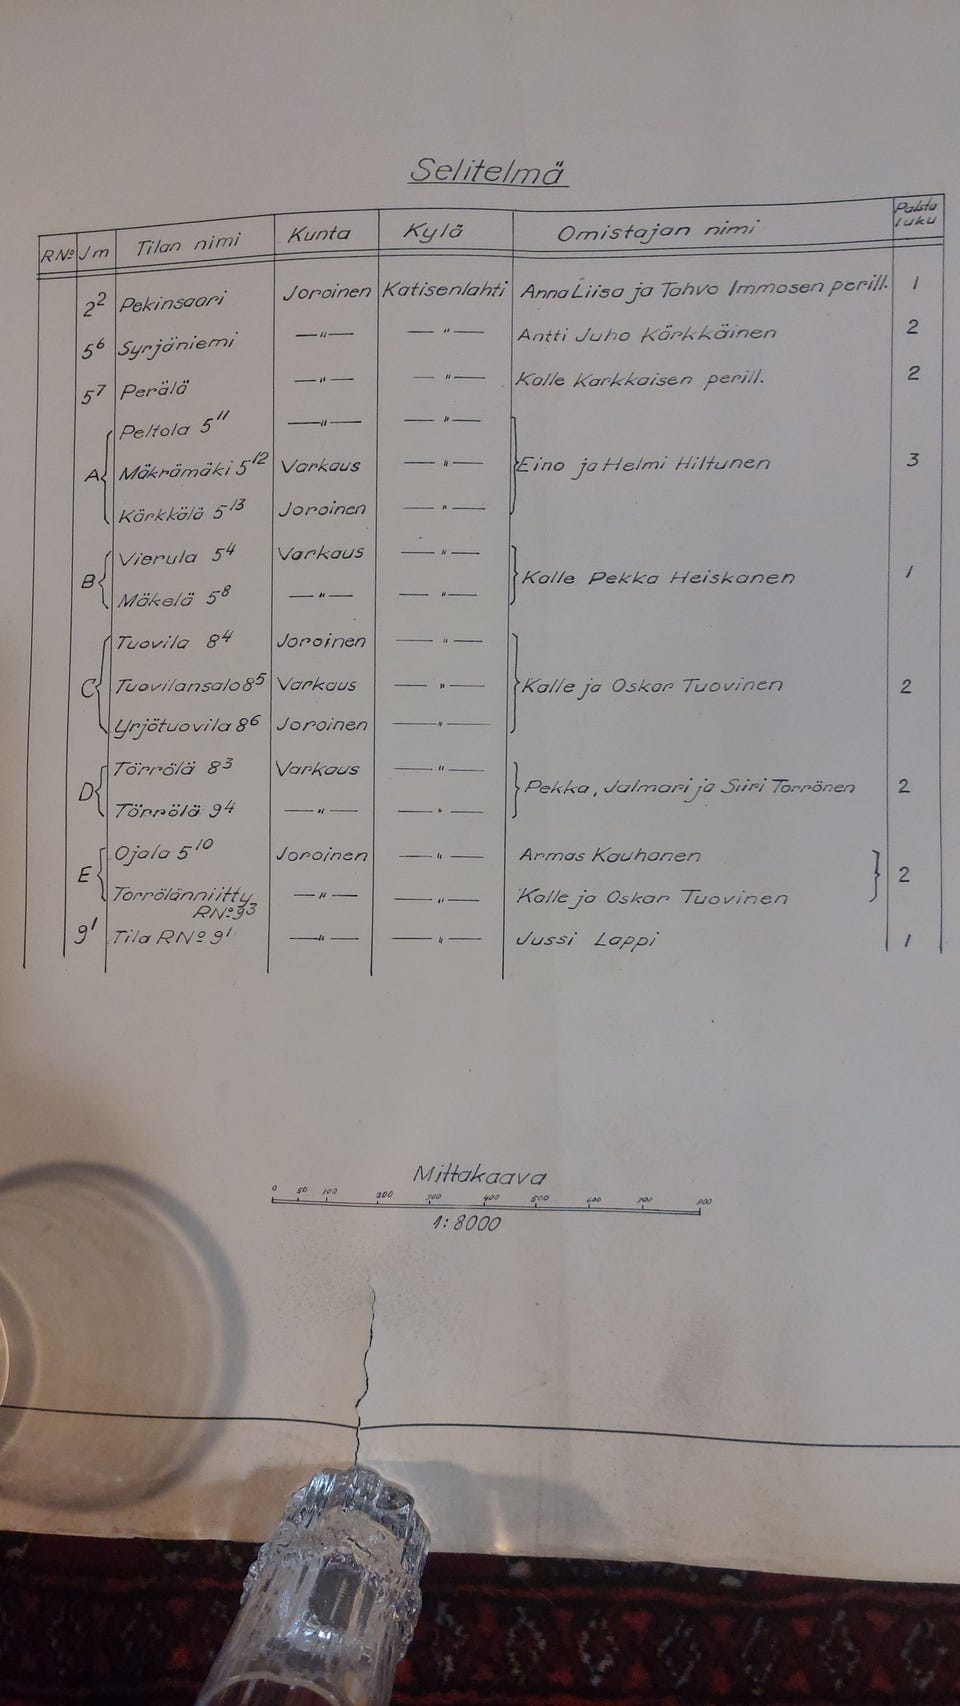 Selitelmä
RNo Jm Tilan nimi Kunta Kylä Omistajan nimi Palsta luku
2² Pekinsaari Joroinen Katisenlahti Anna Liisa ja Tahvo Immosen perill. 1
5⁶ Syrjäniemi —"— —"— Antti Juho Kärkkäinen 2
5⁷ Perälä —"— —"— Kalle Karkkaisen perill. 2
A { Peltola 5¹¹ —"— —"—
Mäkrämäki 5¹² Varkaus —"— } Eino ja Helmi Hiltunen 3
Kärkkölä 5¹³ Joroinen —"—
B { Vierula 5⁴ Varkaus —"— } Kalle Pekka Heiskanen 1
Mäkelä 5⁸ —"— —"—
C { Tuovila 8⁴ Joroinen —"—
Tuovilansalo 8⁵ Varkaus —"— } Kalle ja Oskar Tuovinen 2
Yrjötuovila 8⁶ Joroinen —"—
D { Törrölä 8³ Varkaus —"— } Pekka, Jalmari ja Siiri Torrönen 2
Törrölä 9⁴ —"— —"—
E { Ojala 5¹⁰ Joroinen —"— Armas Kauhanen } 2
Torrölänniitty RNo 9³ —"— —"— Kalle ja Oskar Tuovinen
9¹ Tila RNo 9¹ —"— —"— Jussi Lappi 1
Mittakaava
0 50 100 200 300 400 500 600 700 800
1:8000